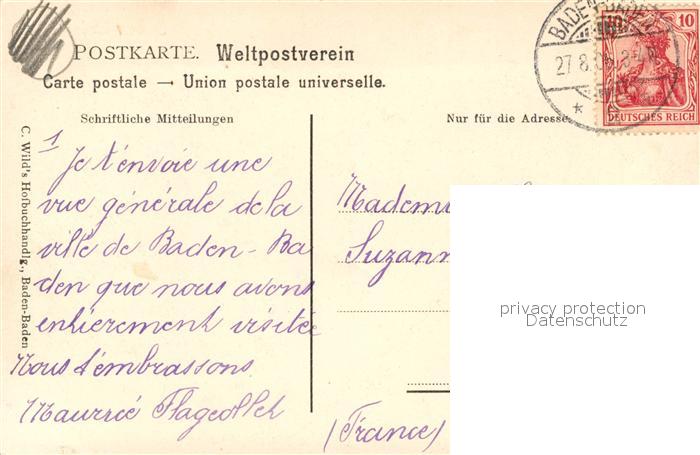 POSTKARTE. Weltpostverein
Carte postale — Union postale universelle.
Schriftliche Mitteilungen
1
Je t'envoie une
vue générale de la
ville de Baden-Ba
den que nous avons
entièrement visitée
Nous t'embrassons
Maurice
C. Wild's Hofbuchhandlg., Baden-Baden
Nur für die Adresse
BADEN-BADEN
27.8.
10 10
DEUTSCHES REICH
Mademoi
Suzann
(France)
privacy protection
Datenschutz